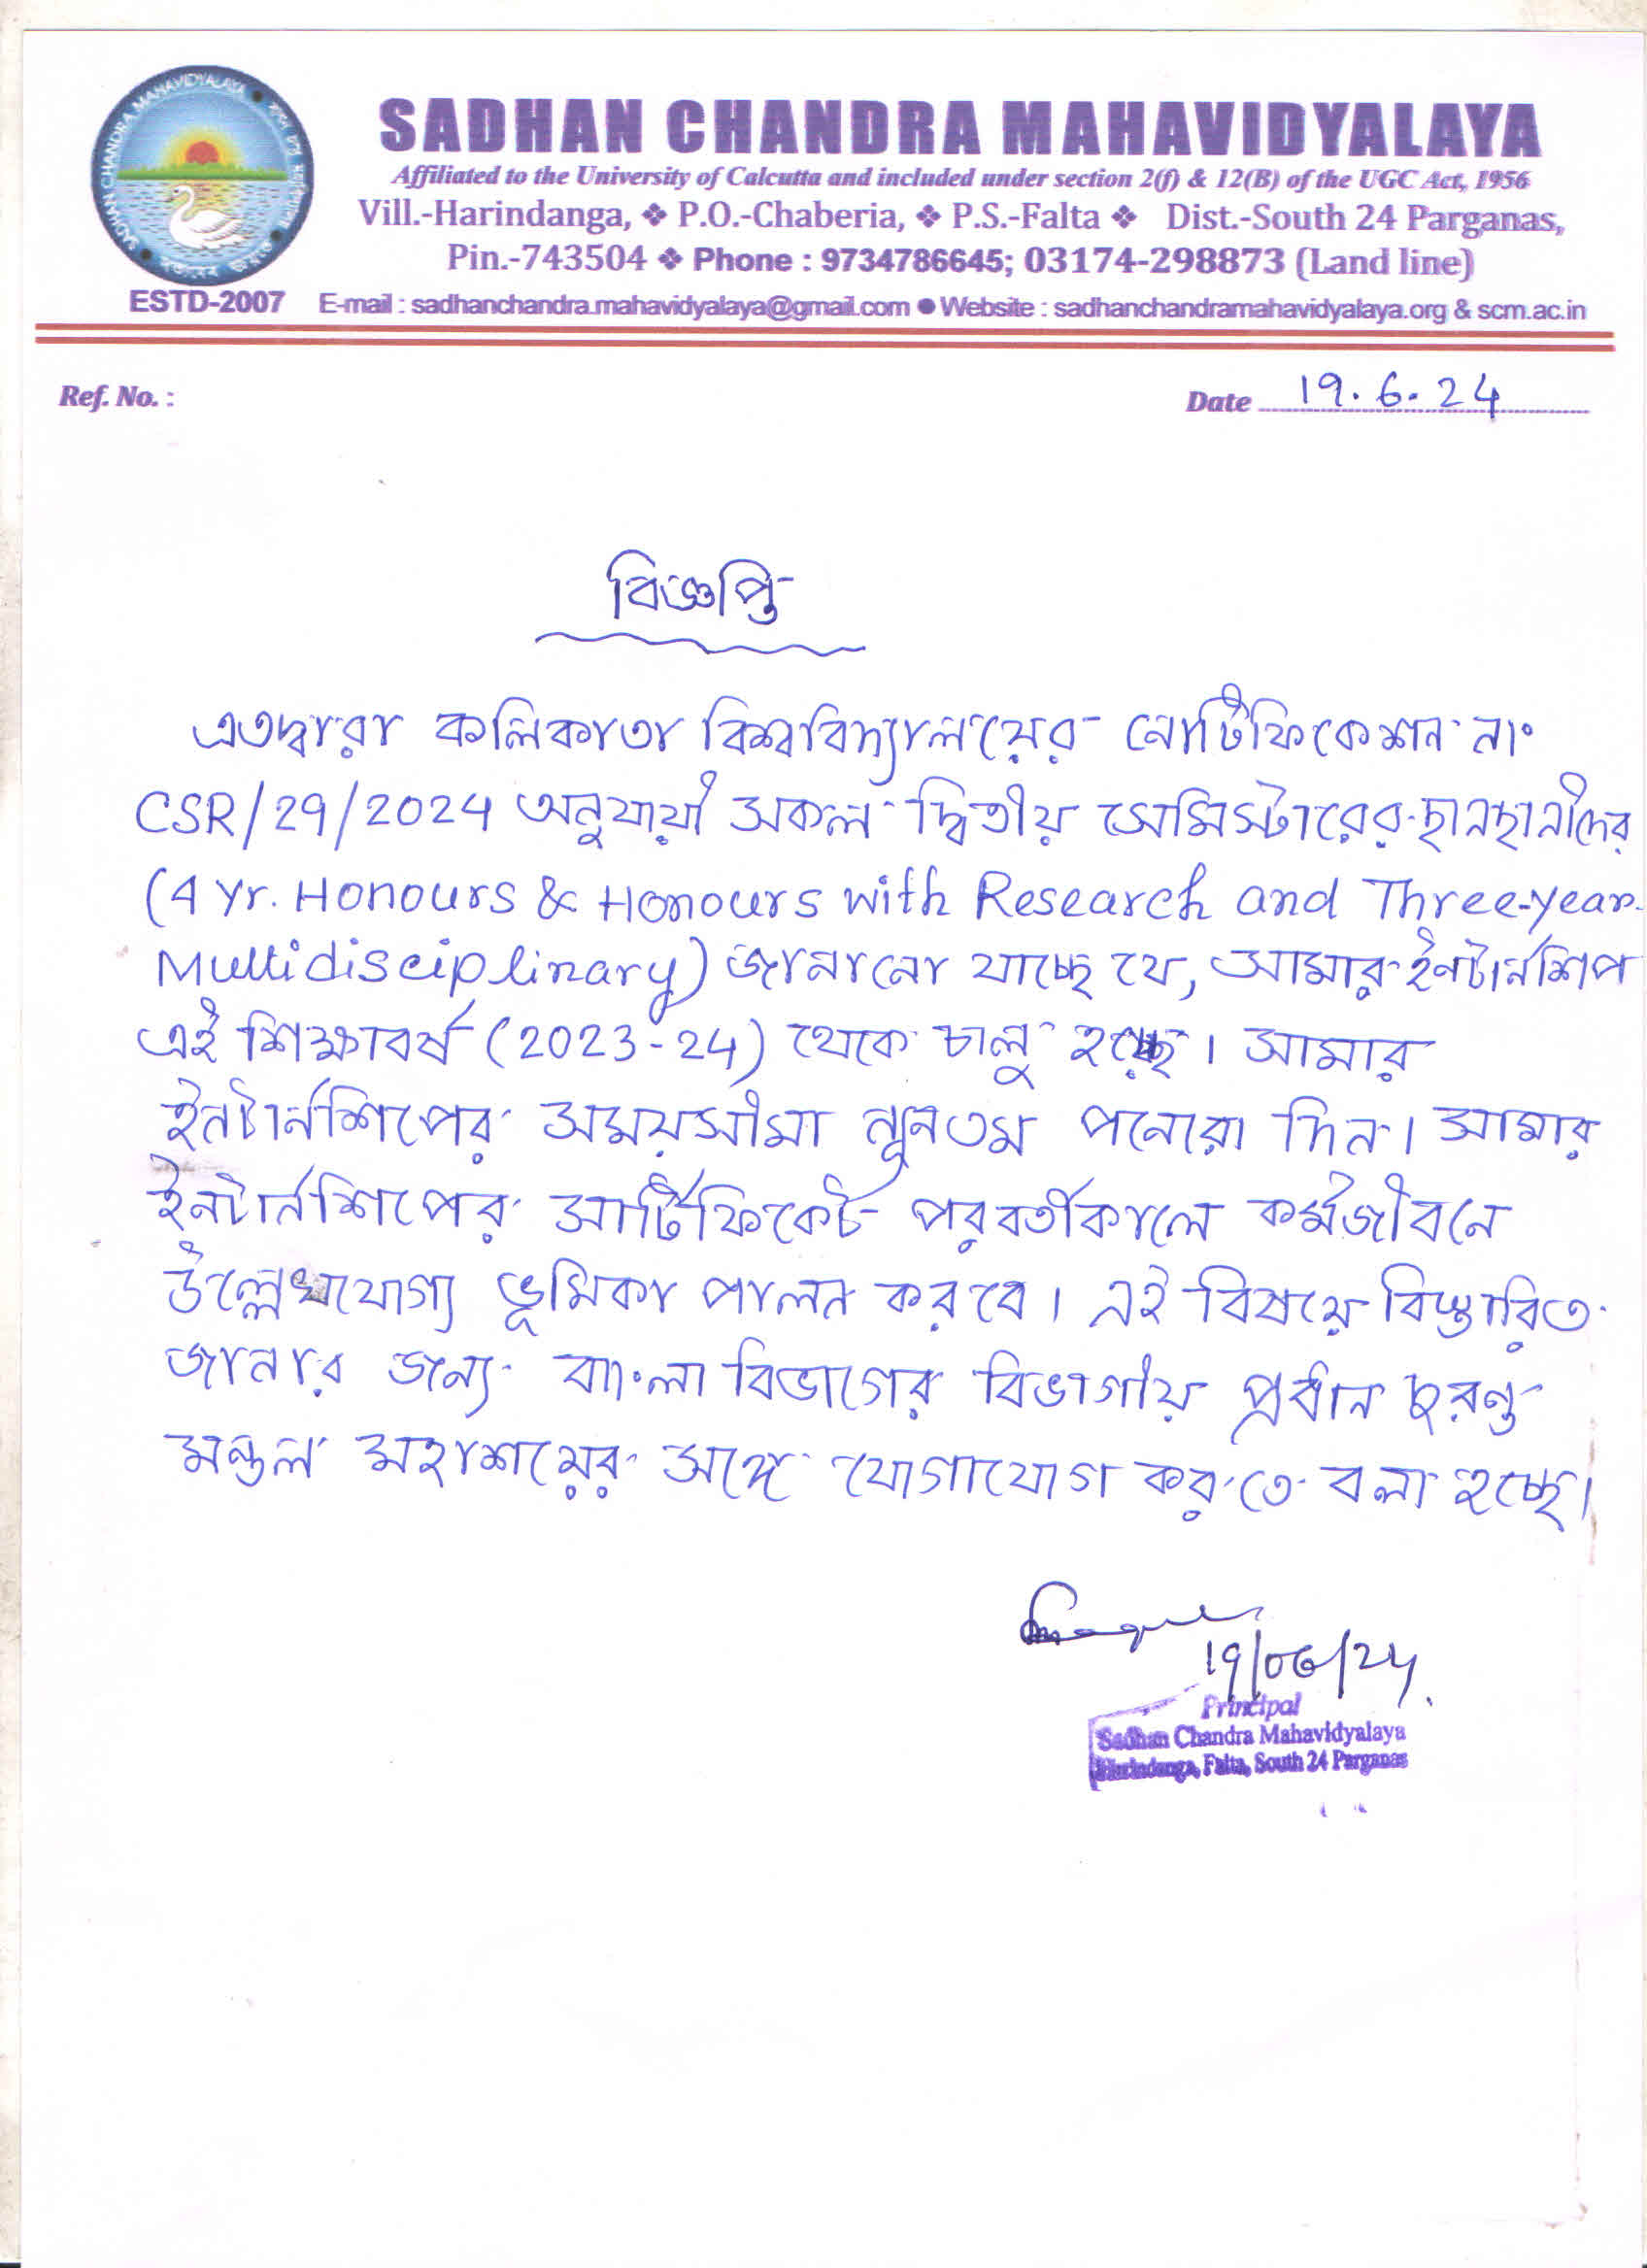 SADHAN CHANDRA MAHAVIDYALAYA
Affiliated to the University of Calcutta and included under section 2(f) & 12(B) of the UGC Act, 1956
Vill.-Harindanga, ❖ P.O.-Chaberia, ❖ P.S.-Falta ❖ Dist.-South 24 Parganas,
Pin.-743504 ❖ Phone : 9734786645; 03174-298873 (Land line)
ESTD-2007 E-mail : sadhanchandra.mahavidyalaya@gmail.com ● Website : sadhanchandramahavidyalaya.org & scm.ac.in
SADHAN CHANDRA MAHAVIDYALAYA
Ref. No. :
Date 19.6.24
বিজ্ঞপ্তি
এতদ্বারা কলিকাতা বিশ্ববিদ্যালয়ের নোটিফিকেশন নং
CSR/29/2024 অনুযায়ী সকল দ্বিতীয় সেমিস্টারের ছাত্রছাত্রীদের
(4 Yr. Honours & Honours with Research and Three-year
Multidisciplinary) জানানো যাচ্ছে যে, সামার ইনটার্নশিপ
এই শিক্ষাবর্ষ (2023-24) থেকে চালু হচ্ছে। সামার
ইনটার্নশিপের সময়সীমা ন্যূনতম পনেরো দিন। সামার
ইনটার্নশিপের সার্টিফিকেট পরবর্তীকালে কর্মজীবনে
উল্লেখযোগ্য ভূমিকা পালন করবে। এই বিষয়ে বিস্তারিত
জানার জন্য বাংলা বিভাগের বিভাগীয় প্রধান
মন্ডল মহাশয়ের সঙ্গে যোগাযোগ করতে বলা হচ্ছে।
19/06/24.
Principal
Sadhan Chandra Mahavidyalaya
Harindanga, Falta, South 24 Parganas